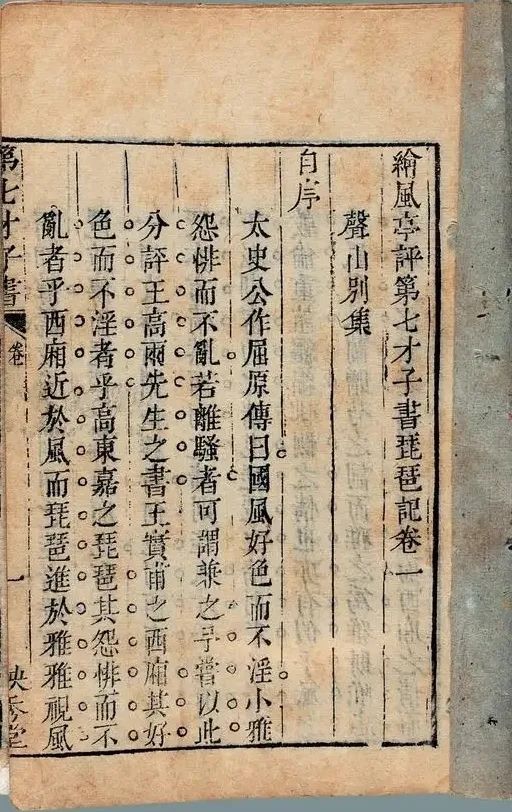 繪風亭評第七才子書琵琶記卷一
聲山別集
自序
太史公作屈原傳曰國風好色而不淫小雅
怨悱而不亂若離騷者可謂兼之乎嘗以此
分評王高兩先生之書王實甫之西廂其好
色而不淫者乎高東嘉之琵琶其怨悱而不
亂者乎西廂近於風而琵琶進於雅雅視風
第七才子書
卷
一
映秀堂